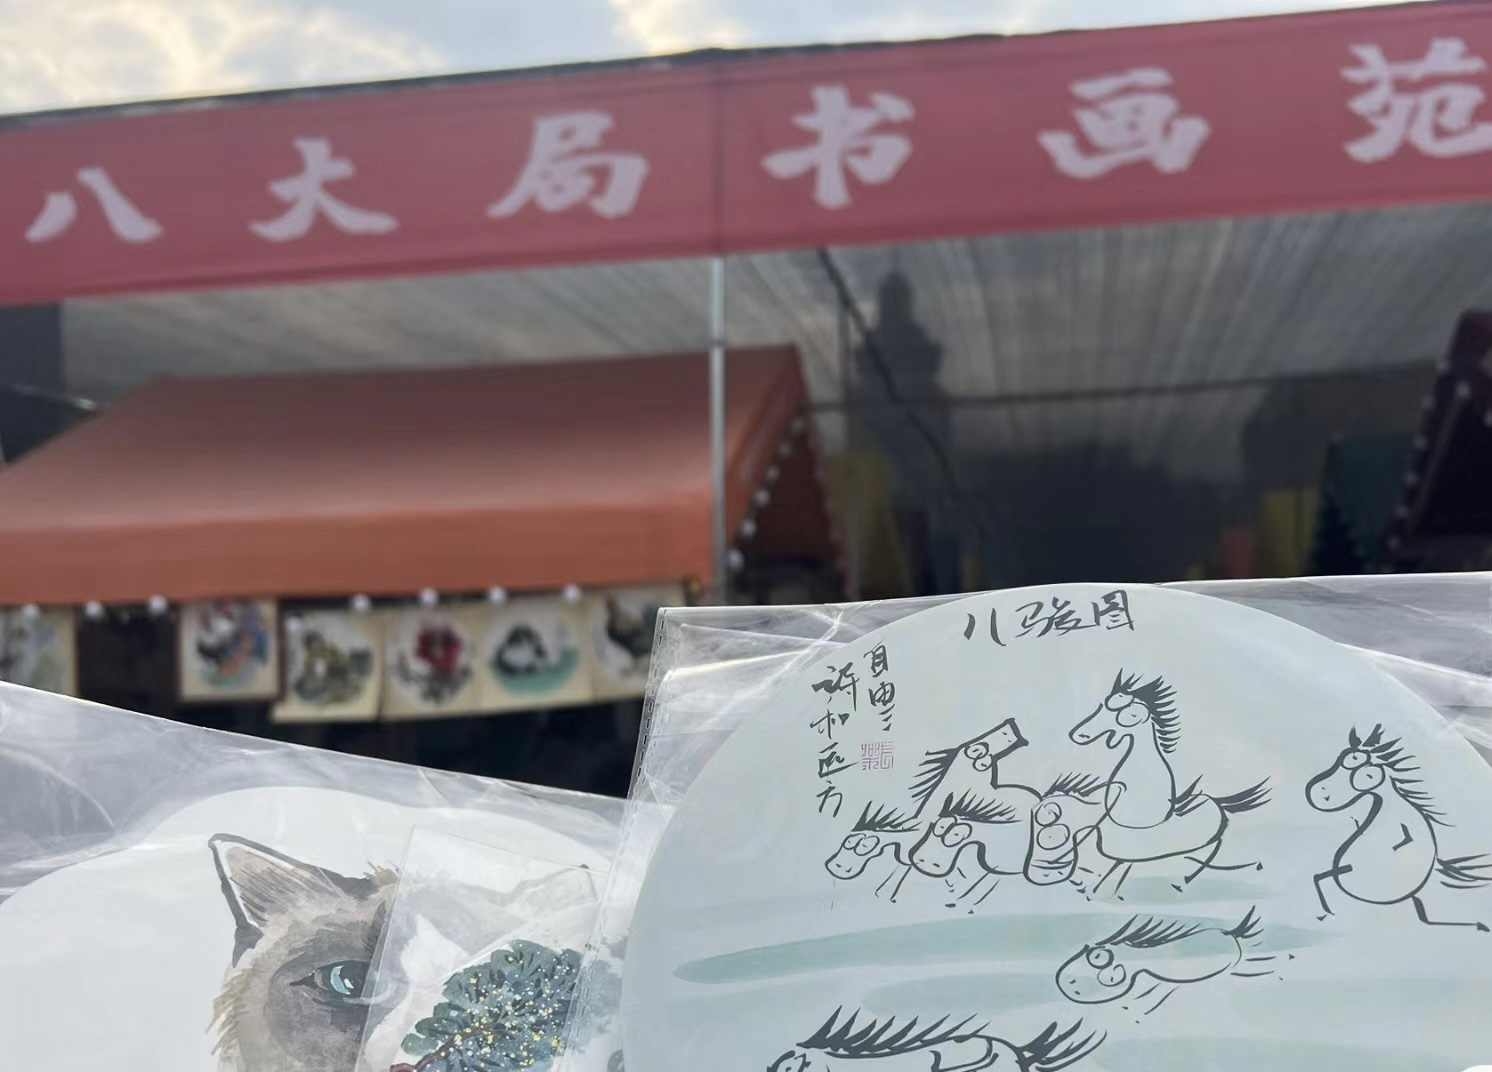 八大局书画苑
八骏图
自由
诗和远方